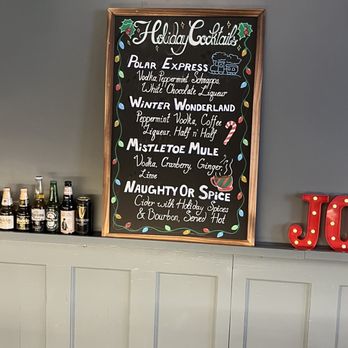 Holiday Cocktails
Polar Express
Vodka, Peppermint Schnapps,
White Chocolate Liqueur
Winter Wonderland
Peppermint Vodka, Coffee
Liqueur, Half n' Half
Mistletoe Mule
Vodka, Cranberry, Ginger,
Lime
Naughty Or Spice
Cider with Holiday Spices
& Bourbon, Served Hot
JO